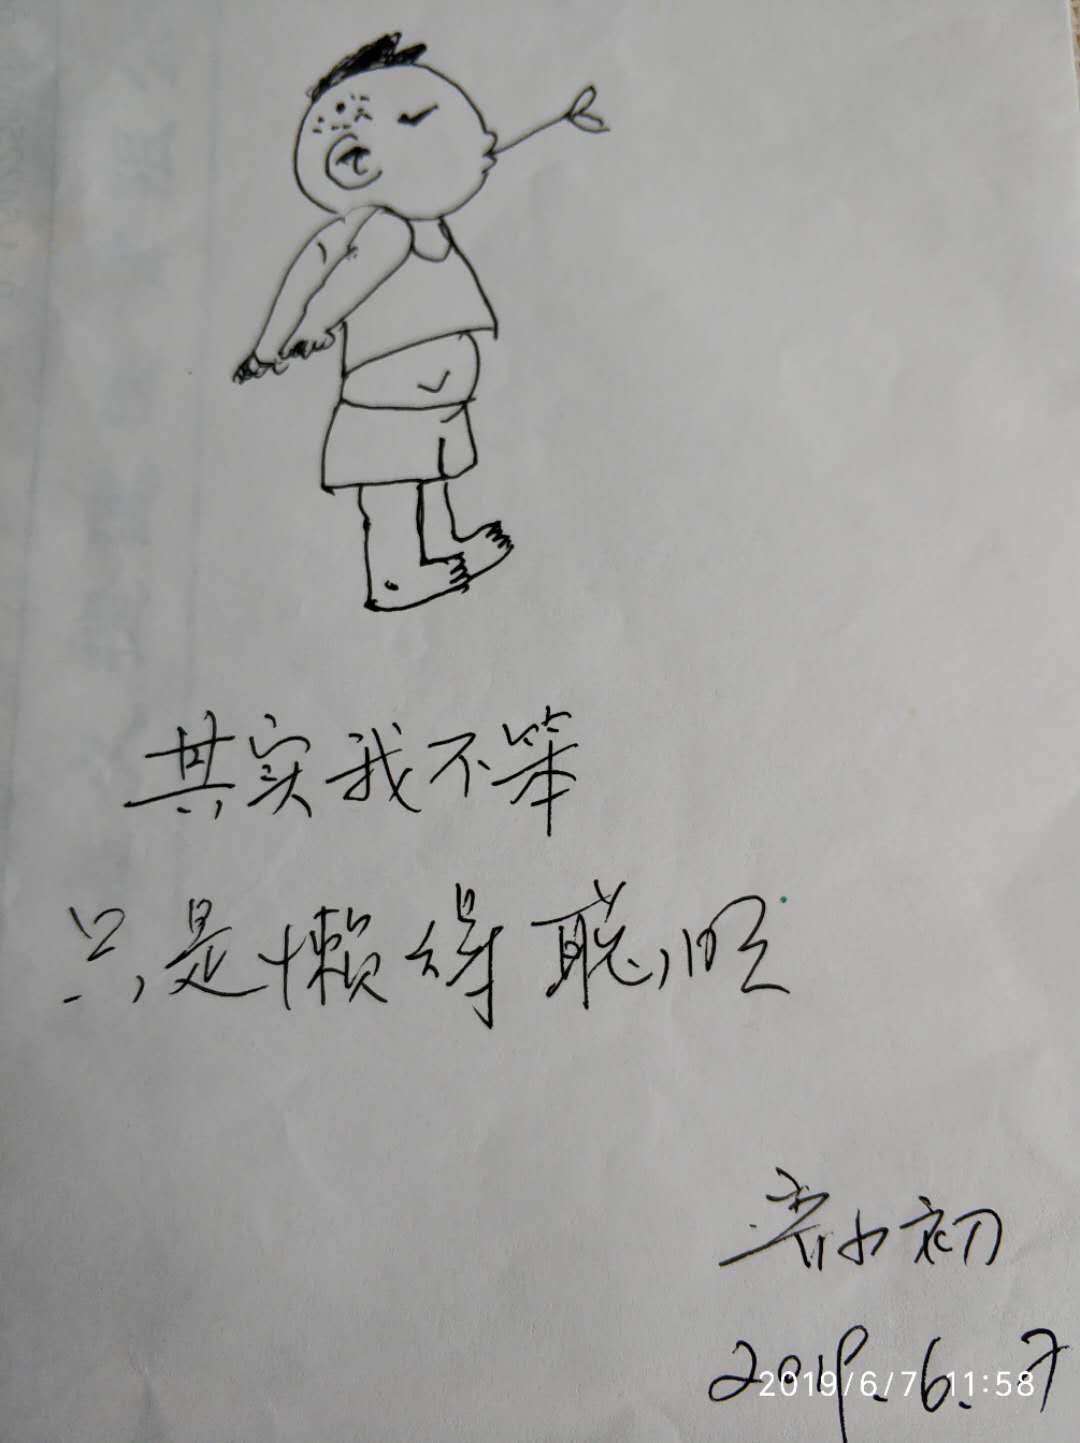 其实我不笨
只是懒得聪明
齐小初
2019.6.7
2019/6/7 11:58